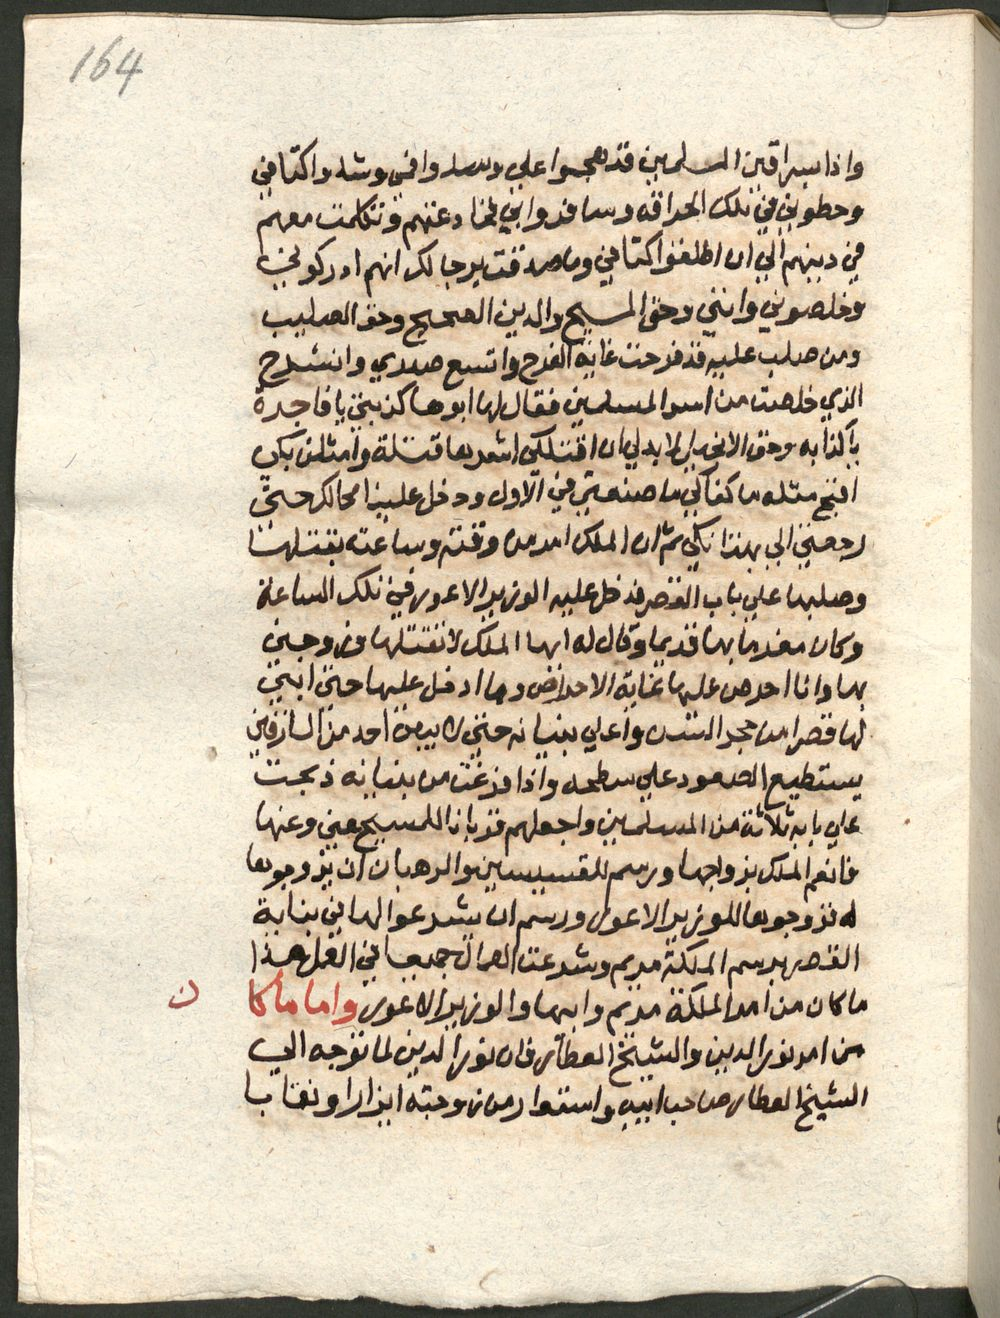 164
واذا بسراقين المسلمين قد هجموا علي وسدوا فمي وشدوا كتافي
وحطوني في تلك الحراقه وسافروا بي فخادعتهم وتكلمت معهم
في دينهم الي ان اطلقوا كتافي وما صدقت برجالك انهم ادركوني
وخلصوني وانني وحق المسيح والدين الصحيح وحق الصليب
ومن صلب عليه قد فرحت غاية الفرح واتسع صدري وانشرح
الذي خلصت من اسر المسلمين فقال لها ابوها كذبتي يا فاجرة
يا كذابه وحق الانجيل لا بد لي ان اقتلكي اشر قتلة وامثل بكي
اقبح مثله ما كفاكي ما صنعتي في الاول ودخل علينا محالك حتي
رجعتي الي بهتانكي ثم ان الملك امر من وقته وساعته بقتلها
وصلبها علي باب القصر فدخل عليه الوزير الاعور في تلك الساعة
وكان مغرما بها قديما وقال له ايها الملك لا تقتلها وزوجني
بها وانا احرص عليها غاية الاحراض وما ادخل عليها حتي ابني
لها قصرا من حجر واعلي بنيانه حتي لا يبقي احد من السارقين
يستطيع الصعود علي سطحه واذا فرغت من بنيانه ذبحت
علي بابه ثلاثة من المسلمين واجعلهم قربانا للمسيح عني وعنها
فانعم الملك بزواجها ورسم للقسيسين والرهبان ان يزوجوها
له فزوجوها للوزير الاعور ورسم ان يشرعوا لها في بناية
القصر برسم الملكة مريم وشرعت العمال جميعا في العمل هذا
ما كان من امر الملكة مريم وابيها والوزير الاعور واما ما كا
ن
من امر نور الدين والشيخ العطار فان نور الدين لما توجه الي
الشيخ العطار صاحب ابيه واستعار من زوجته ايزارا ونقابا